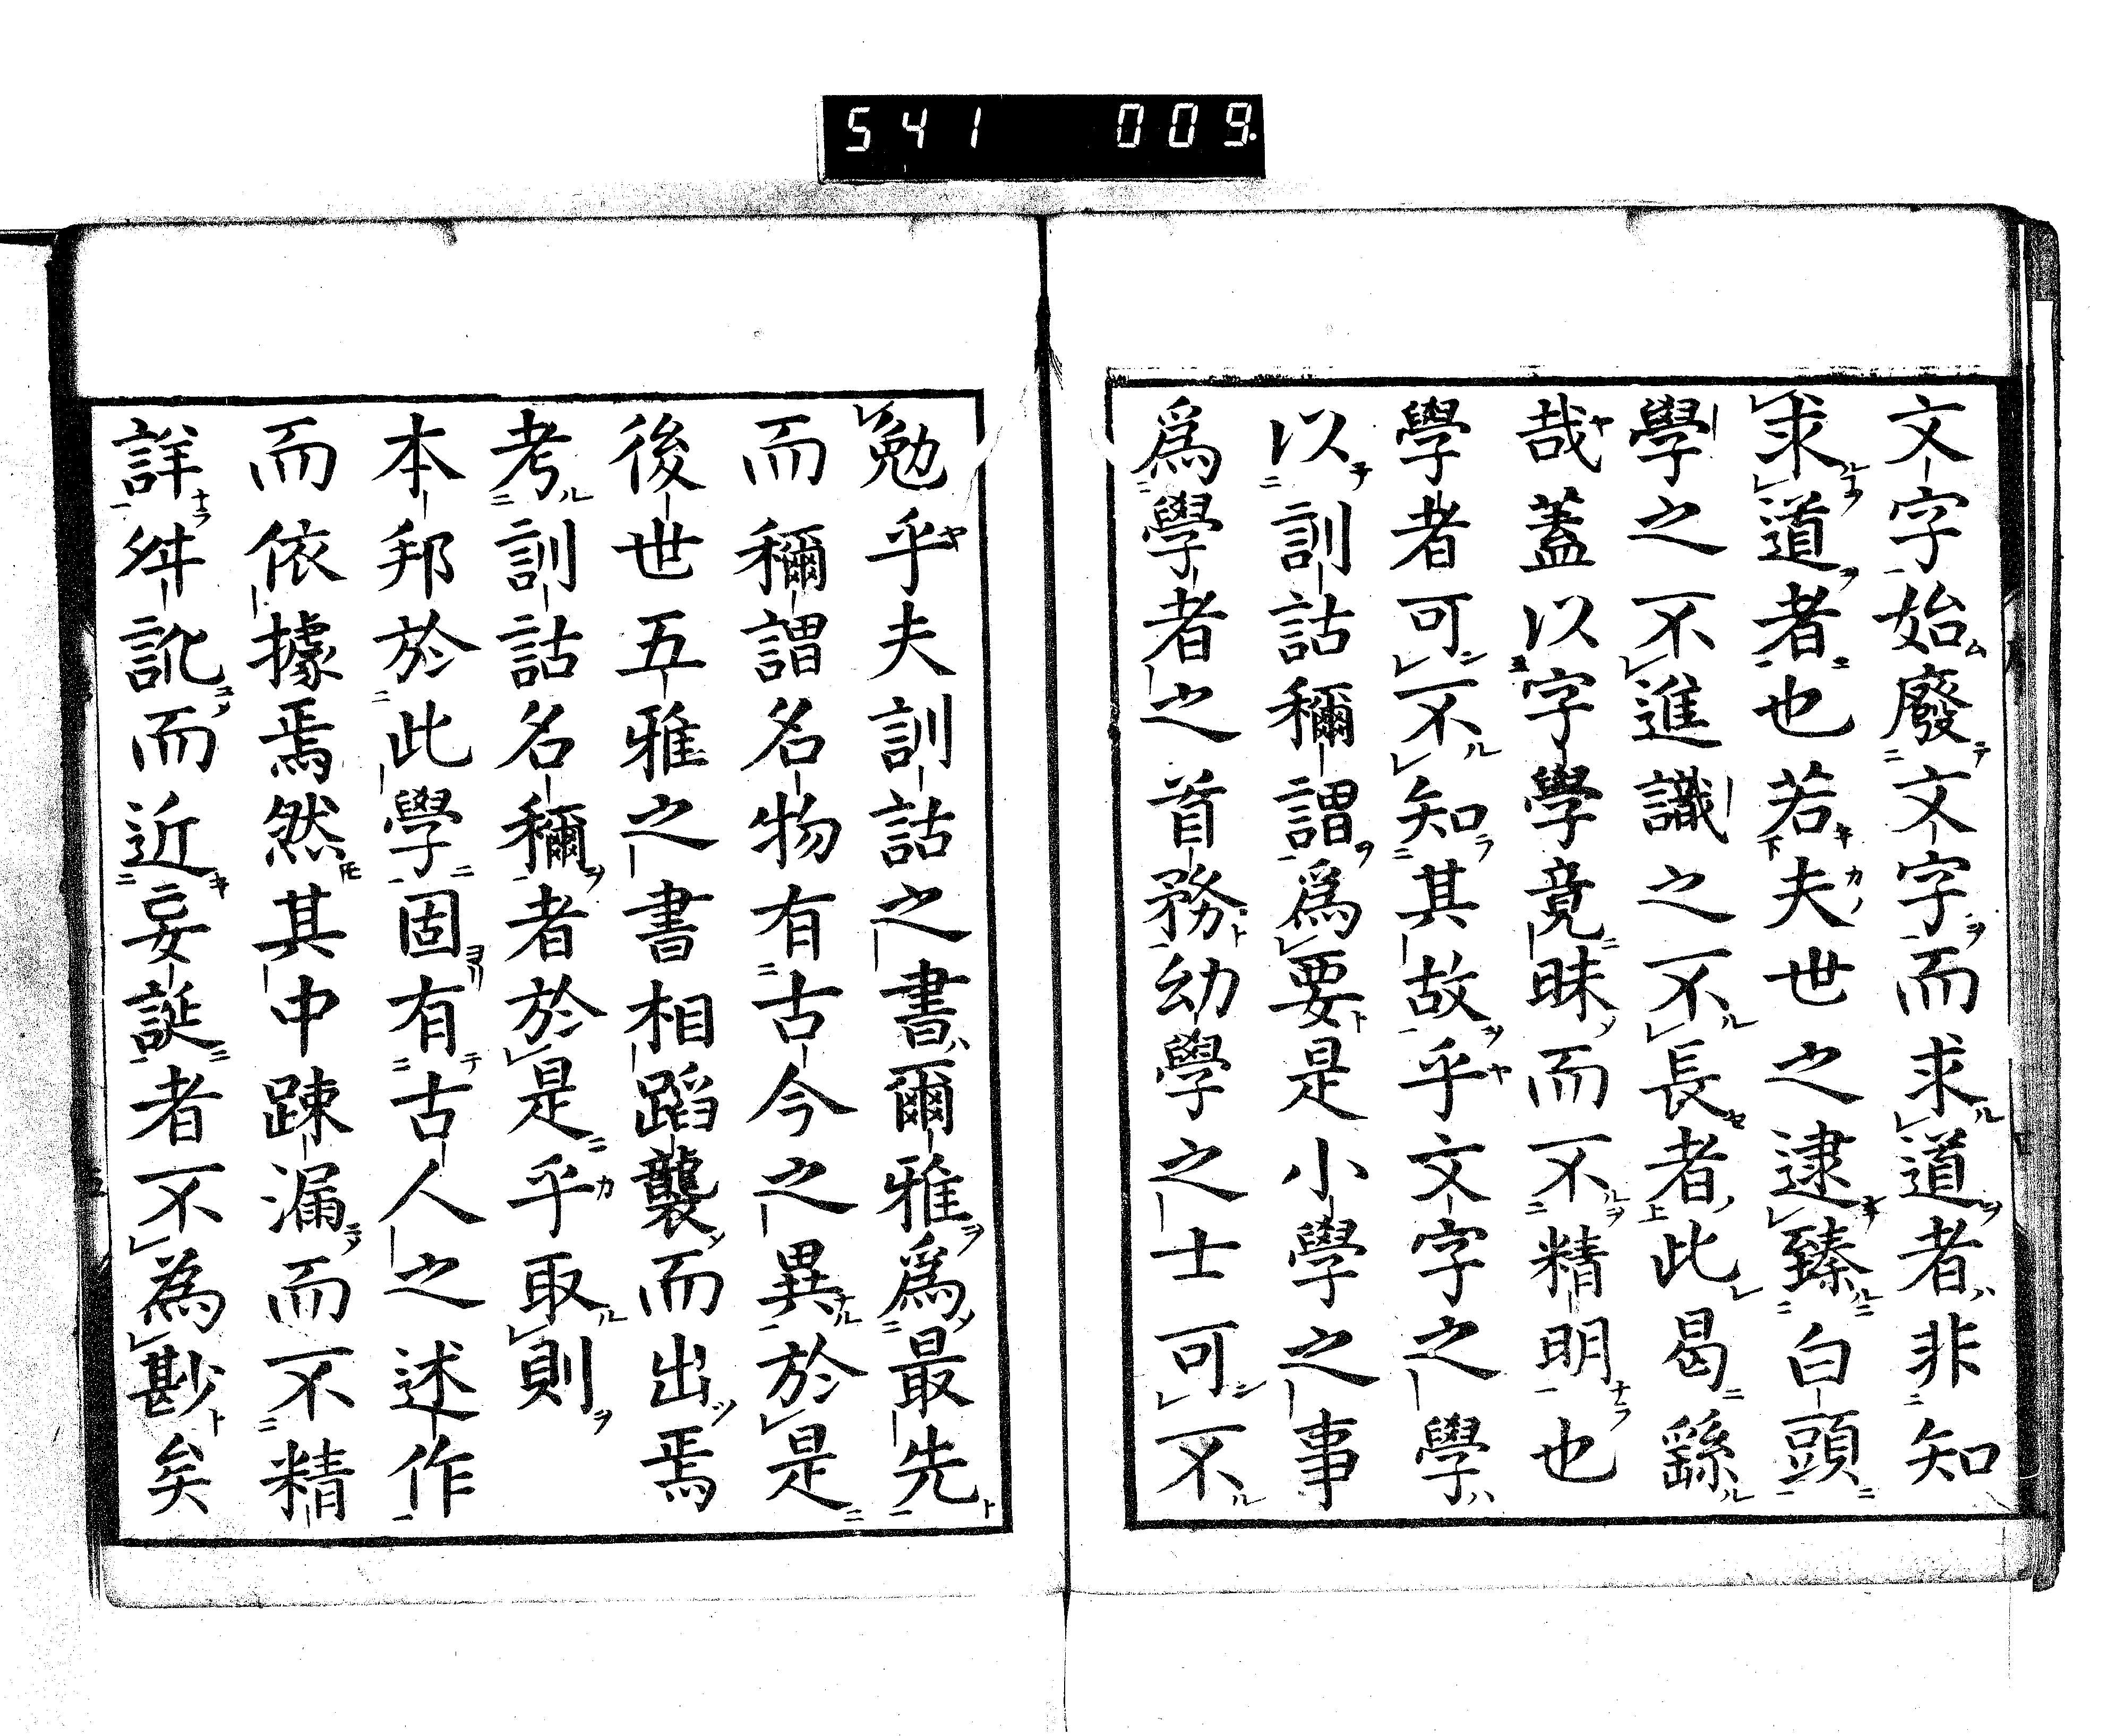 541 009
文字始廢文字而求道者非知
求道者也若夫世之逮臻白頭
學之不進識之不長者此曷繇
哉蓋以字學竟昧而不精明也
學者可不知其故乎文字之學
以訓詁稱謂爲要是小學之事
爲學者之首務幼學之士可不
勉乎夫訓詁之書爾雅爲最先
而稱謂名物有古今之異於是
後世五雅之書相蹈襲而出焉
考訓詁名稱者於是乎取則
本邦於此學固有古人之述作
而依據焉然其中踈漏而不精
詳舛訛而近妄誕者不為尠矣